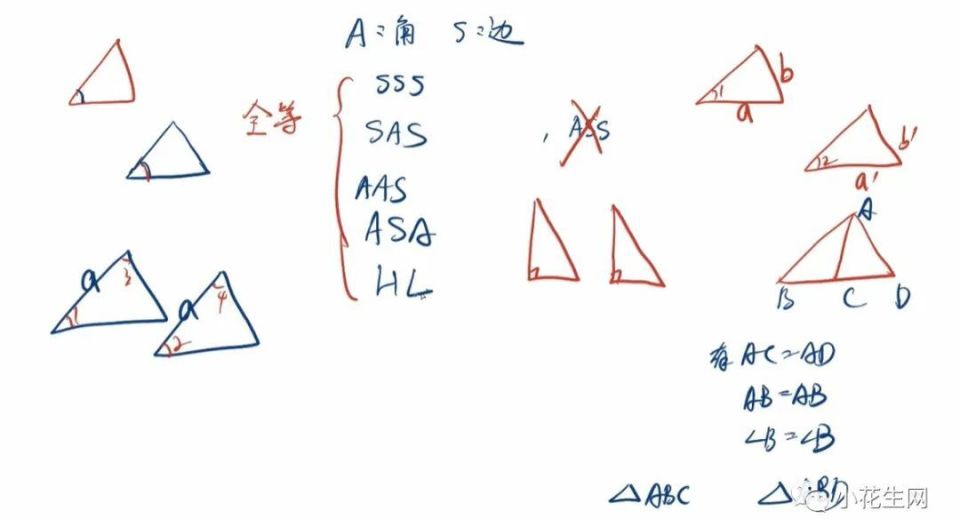 A=角 S=边
SSS
全等
SAS
, ASS
AAS
ASA
HL
b
1
a
2
b'
a'
A
B C D
a
3
1
a
4
2
有 AC=AD
AB=AB
∠B=∠B
△ABC △ABD
小花生网